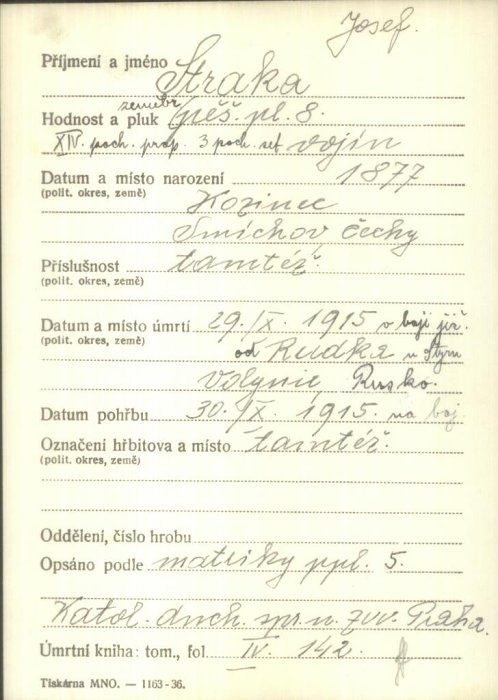 Josef.
Příjmení a jméno Straka
zeměbr.
Hodnost a pluk pěš. pl. 8.
XIV. poch. prap. 3 poch. set vojín
Datum a místo narození 1877
(polit. okres, země)
Kozinec
Smíchov, Čechy
Příslušnost tamtéž.
(polit. okres, země)
Datum a místo úmrtí 29./IX. 1915 v boji již.
(polit. okres, země)
od Rudka u Styru
Volynie, Rusko.
Datum pohřbu 30./IX. 1915. na boj.
Označení hřbitova a místo tamtéž.
(polit. okres, země)
Oddělení, číslo hrobu
Opsáno podle matriky ppl. 5.
Katol. duch. spr. u. zvv. Praha.
Úmrtní kniha: tom., fol. IV. 142.
Tiskárna MNO. — 1163-36.